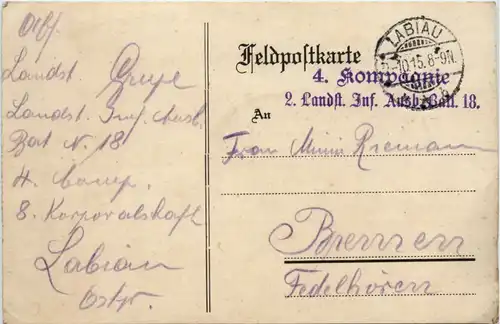 Abs.
Landst. Grupe
Landst. Inf. Ausb.
Bat N. 18
4. Comp.
8. Korporalschaft
Labiau
Ostpr.
LABIAU
10.15. 8-9N.
Feldpostkarte
4. Kompagnie
2. Landst. Inf. Ausb. Batl. 18.
An
Frau Minni Riemann
Bremen
Fedelhören